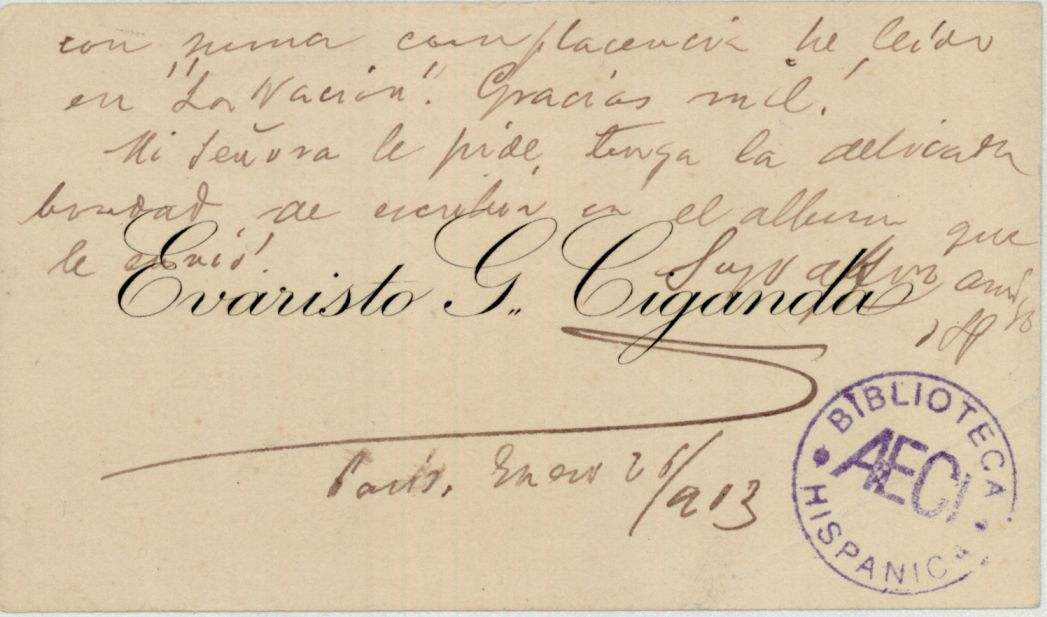 con suma complacencia he leído
en "La Nación". Gracias mil.
Mi señora le pide, tenga la delicada
bondad de escribir en el album que
le envió.
Suyo afmo amigo
Evaristo G. Ciganda
París, Enero 26/913
BIBLIOTECA
AECI
HISPANICA